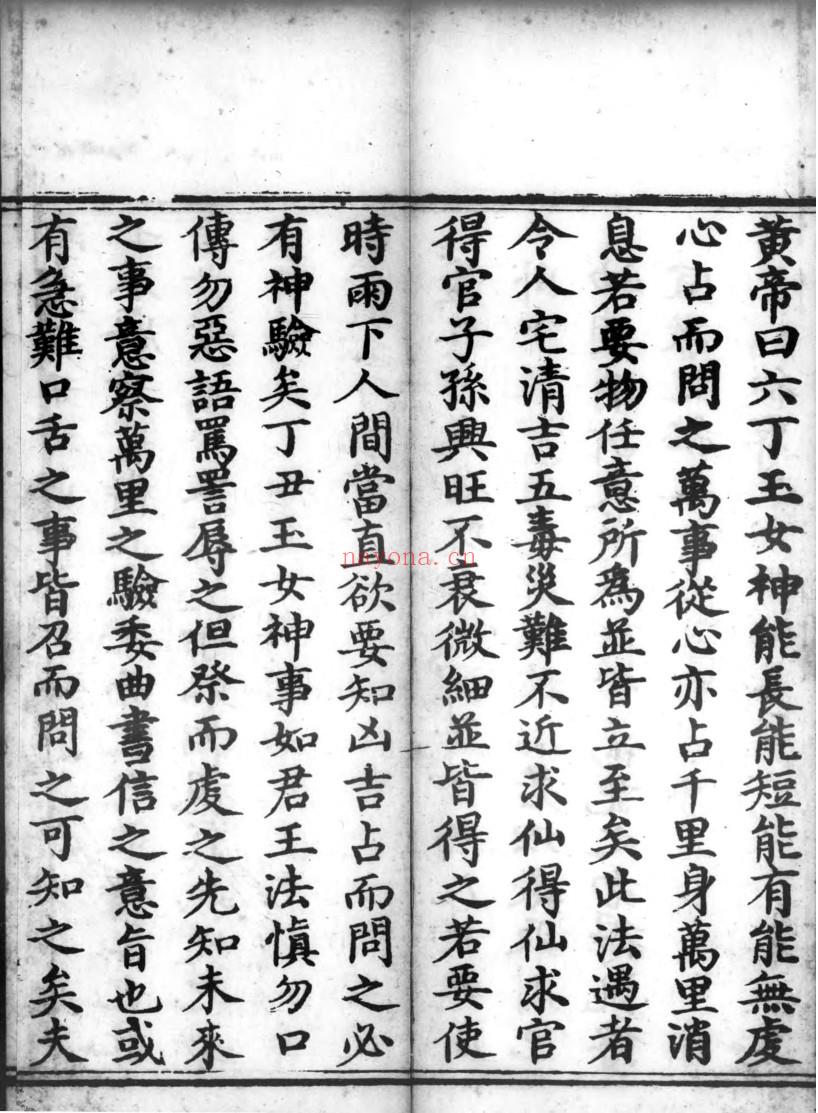 黃帝曰六丁玉女神能長能短能有能無虔
心占而問之萬事從心亦占千里身萬里消
息若要物任意所為並皆立至矣此法遇者
令人宅清吉五毒災難不近求仙得仙求官
得官子孫興旺不衰微細並皆得之若要使
時雨下人間當直欲要知凶吉占而問之必
有神驗矣丁丑玉女神事如君王法慎勿口
傳勿惡語罵詈辱之但祭而虔之先知未來
之事意察萬里之驗委曲書信之意旨也或
有急難口舌之事皆召而問之可知之矣夫
nayona.cn